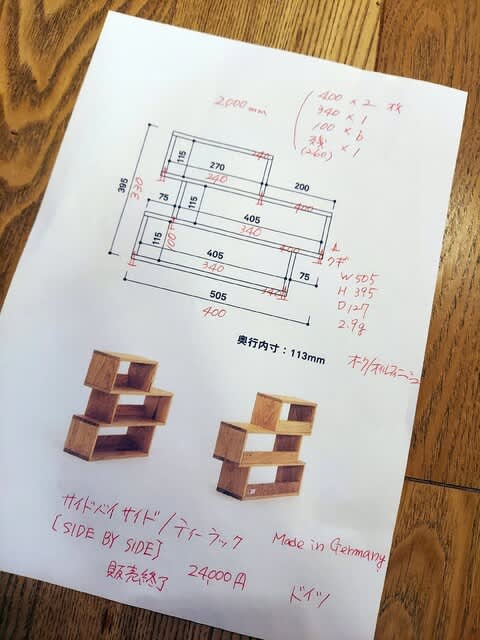 2000mm
400 × 2 枚
340 × 1
100 × 6
残 × 1
(260)
115
270
240
240
200
395
330
75
115
405
340
400
115
100
405
340
400
クギ
75
505
400
340
W 505
H 395
D 127
2.9g
奥行内寸：113mm
オーク/オイルフィニッシュ
サイドバイサイド/ティーラック
[SIDE BY SIDE]
Made in Germany
販売終了 24,000円
ドイツ